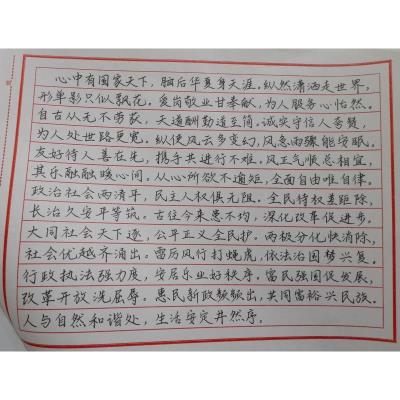 心中有国家天下，脑后华夏身天涯。纵然潇洒走世界，
形单影只似飘花。爱岗敬业甘奉献，为人服务心怡然。
自古从无不劳获，天道酬勤道至简。诚实守信人夸赞，
为人处世路更宽。纵使风云多变幻，风急雨骤能安眠。
友好待人善在先，携手共进行不难。风正气顺总相宜，
其乐融融暖心间。从心所欲不逾矩，全面自由唯自律。
政治社会两清平，民主人权俱无阻。全民特权差距除，
长治久安平等筑。古往今来患不均，深化改革促进步。
大同社会天下逐，公平正义全民护。两极分化快消除，
社会优越齐涌出。雷厉风行打蝇虎，依法治国梦兴复。
行政执法强力度，安居乐业好秩序。富民强国促发展，
改革开放洗屈辱。惠民新政频频出，共同富裕兴民族。
人与自然和谐处，生活安定井然序。